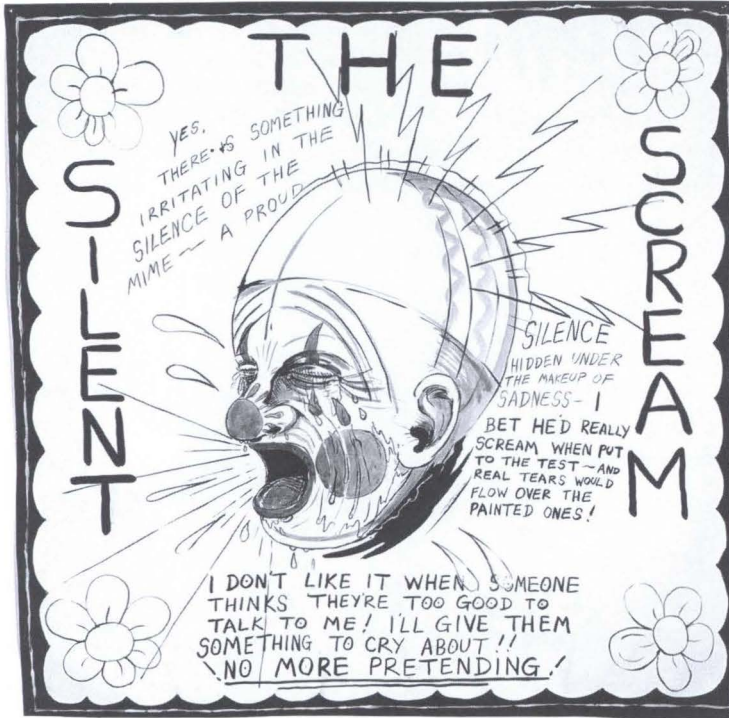 THE
SILENT
SCREAM
YES.
THERE IS SOMETHING
IRRITATING IN THE
SILENCE OF THE
MIME — A PROUD
SILENCE
HIDDEN UNDER
THE MAKEUP OF
SADNESS - I
BET HE'D REALLY
SCREAM WHEN PUT
TO THE TEST — AND
REAL TEARS WOULD
FLOW OVER THE
PAINTED ONES!
I DON'T LIKE IT WHEN SOMEONE
THINKS THEY'RE TOO GOOD TO
TALK TO ME! I'LL GIVE THEM
SOMETHING TO CRY ABOUT!!
NO MORE PRETENDING!